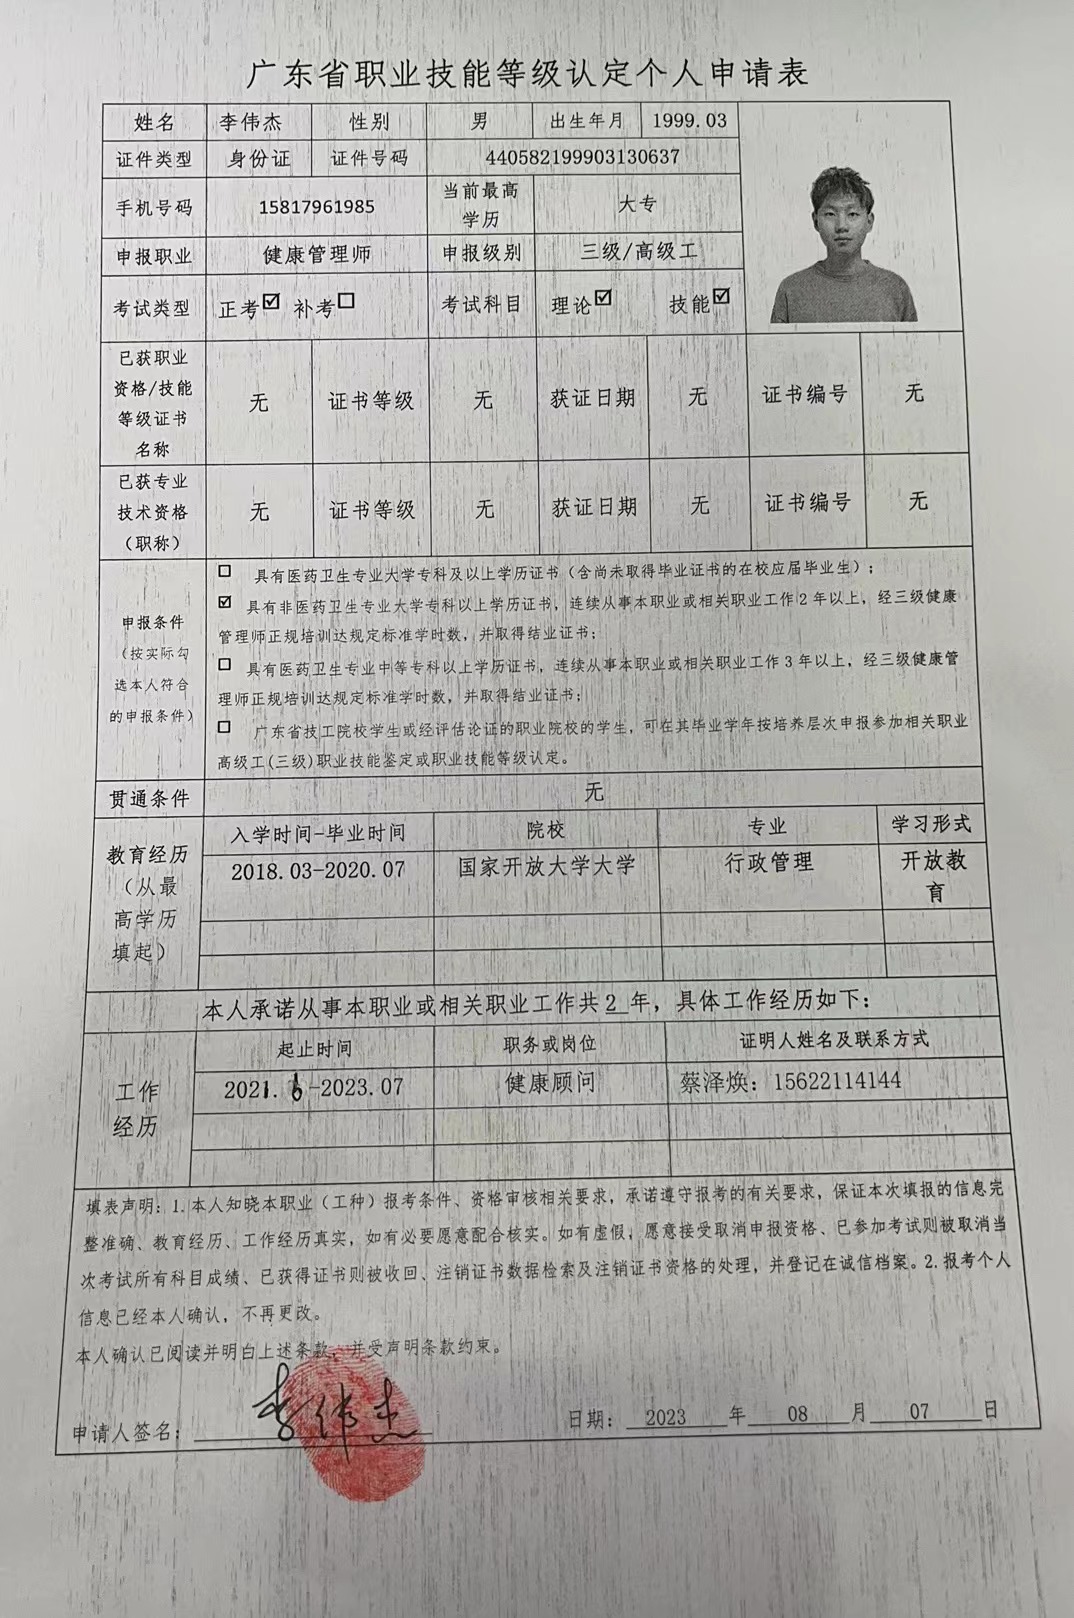 广东省职业技能等级认定个人申请表
姓名 李伟杰 性别 男 出生年月 1999.03
证件类型 身份证 证件号码 440582199903130637
手机号码 15817961985 当前最高学历 大专
申报职业 健康管理师 申报级别 三级/高级工
考试类型 正考☑ 补考☐ 考试科目 理论☑ 技能☑
已获职业资格/技能等级证书名称 无 证书等级 无 获证日期 无 证书编号 无
已获专业技术资格（职称） 无 证书等级 无 获证日期 无 证书编号 无
申报条件（按实际勾选本人符合的申报条件）
☐ 具有医药卫生专业大学专科及以上学历证书（含尚未取得毕业证书的在校应届毕业生）；
☑ 具有非医药卫生专业大学专科以上学历证书，连续从事本职业或相关职业工作2年以上，经三级健康
管理师正规培训达规定标准学时数，并取得结业证书；
☐ 具有医药卫生专业中等专科以上学历证书，连续从事本职业或相关职业工作3年以上，经三级健康管
理师正规培训达规定标准学时数，并取得结业证书；
☐ 广东省技工院校学生或经评估论证的职业院校的学生，可在其毕业学年按培养层次申报参加相关职业
高级工(三级)职业技能鉴定或职业技能等级认定。
贯通条件 无
教育经历（从最高学历填起）
入学时间-毕业时间 院校 专业 学习形式
2018.03-2020.07 国家开放大学大学 行政管理 开放教育
本人承诺从事本职业或相关职业工作共2年，具体工作经历如下：
工作经历
起止时间 职务或岗位 证明人姓名及联系方式
2021.6-2023.07 健康顾问 蔡泽焕：15622114144
填表声明：1.本人知晓本职业（工种）报考条件、资格审核相关要求，承诺遵守报考的有关要求，保证本次填报的信息完
整准确、教育经历、工作经历真实，如有必要愿意配合核实。如有虚假，愿意接受取消申报资格、已参加考试则被取消当
次考试所有科目成绩、已获得证书则被收回、注销证书数据检索及注销证书资格的处理，并登记在诚信档案。2.报考个人
信息已经本人确认，不再更改。
本人确认已阅读并明白上述条款，并受声明条款约束。
申请人签名：李伟杰 日期：2023年08月07日